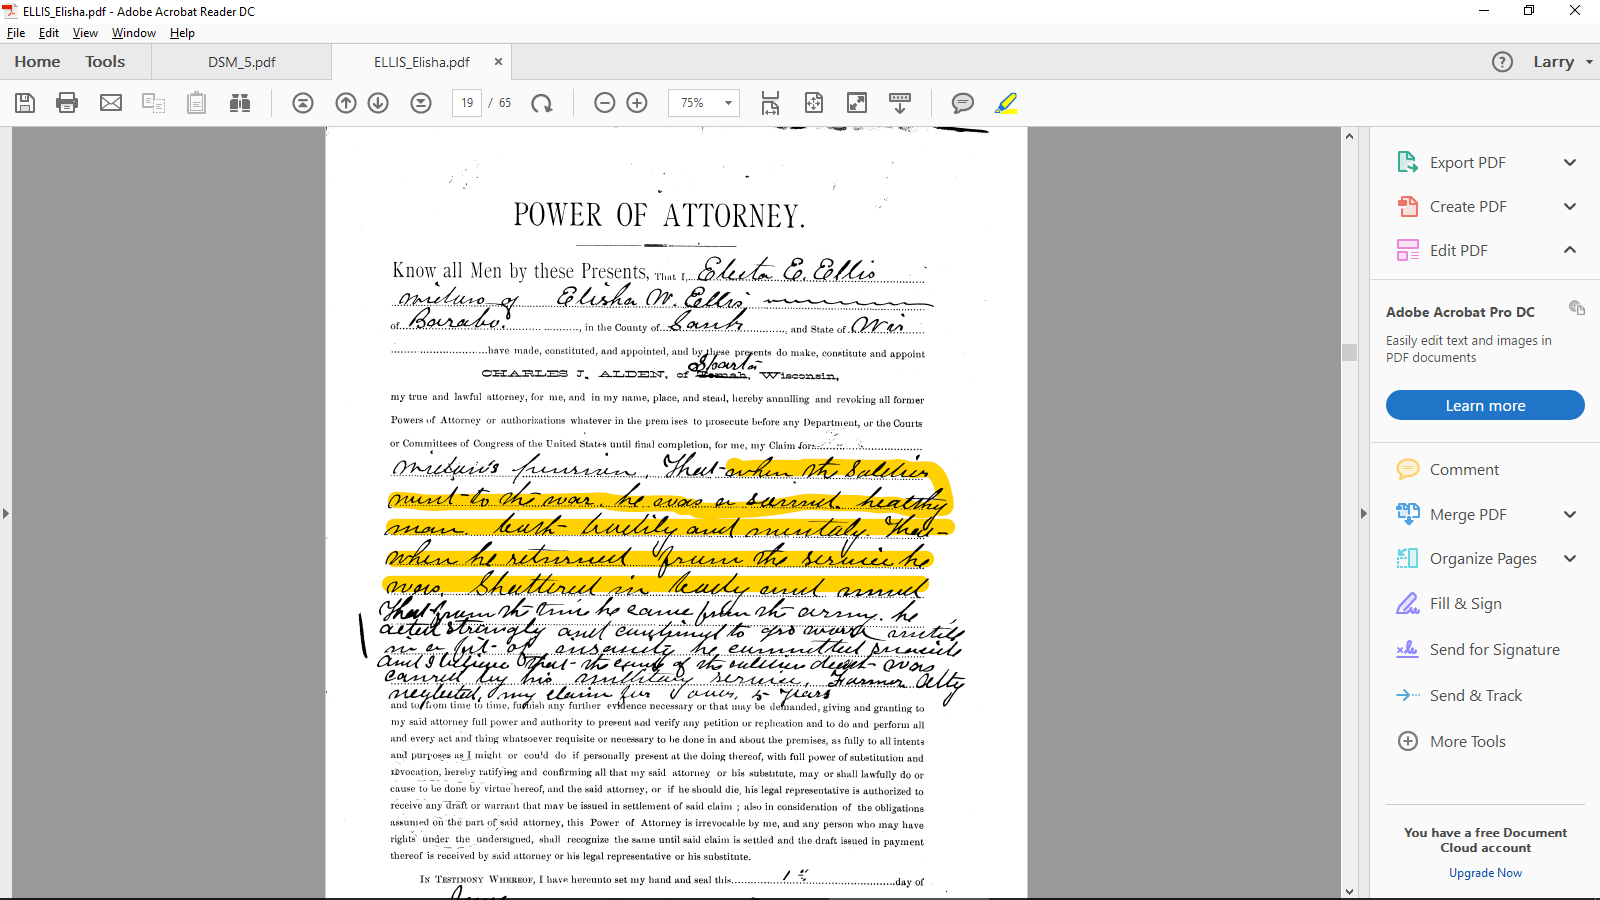 ELLIS_Elisha.pdf - Adobe Acrobat Reader DC
File Edit View Window Help
Home Tools DSM_5.pdf ELLIS_Elisha.pdf × Larry
19 / 65 75%
POWER OF ATTORNEY.
Know all Men by these Presents, That I, Electa E. Ellis
widow of Elisha W. Ellis
of Barabo, in the County of Sauk, and State of Wis
have made, constituted, and appointed, and by these presents do make, constitute and appoint
Sparta
CHARLES J. ALDEN, of Tomah, Wisconsin,
my true and lawful attorney, for me, and in my name, place, and stead, hereby annulling and revoking all former
Powers of Attorney or authorizations whatever in the premises to prosecute before any Department, or the Courts
or Committees of Congress of the United States until final completion, for me, my Claim for
widow's pension, That when the Soldier
went to the war. he was a sound. healthy
man. both bodily and mentaly. That
when he returned from the service he
was. Shattered in body and mind
That from the time he came from the army. he
acted strangly and continued to gro worse untill
in a fit of insanity he committed suicide
and I believe that the cause of the soldiers death was
caused by his military service. Former Atty
neglected, my claim for over. 5 years
and to, from time to time, furnish any further evidence necessary or that may be demanded, giving and granting to
my said attorney full power and authority to present and verify any petition or replication and to do and perform all
and every act and thing whatsoever requisite or necessary to be done in and about the premises, as fully to all intents
and purposes as I might or could do if personally present at the doing thereof, with full power of substitution and
revocation, hereby ratifying and confirming all that my said attorney or his substitute, may or shall lawfully do or
cause to be done by virtue hereof, and the said attorney, or if he should die, his legal representative is authorized to
receive any draft or warrant that may be issued in settlement of said claim ; also in consideration of the obligations
assumed on the part of said attorney, this Power of Attorney is irrevocable by me, and any person who may have
rights under the undersigned, shall recognize the same until said claim is settled and the draft issued in payment
thereof is received by said attorney or his legal representative or his substitute.
IN TESTIMONY WHEREOF, I have hereunto set my hand and seal this 1st day of
Export PDF
Create PDF
Edit PDF
Adobe Acrobat Pro DC
Easily edit text and images in
PDF documents
Learn more
Comment
Merge PDF
Organize Pages
Fill & Sign
Send for Signature
Send & Track
More Tools
You have a free Document
Cloud account
Upgrade Now